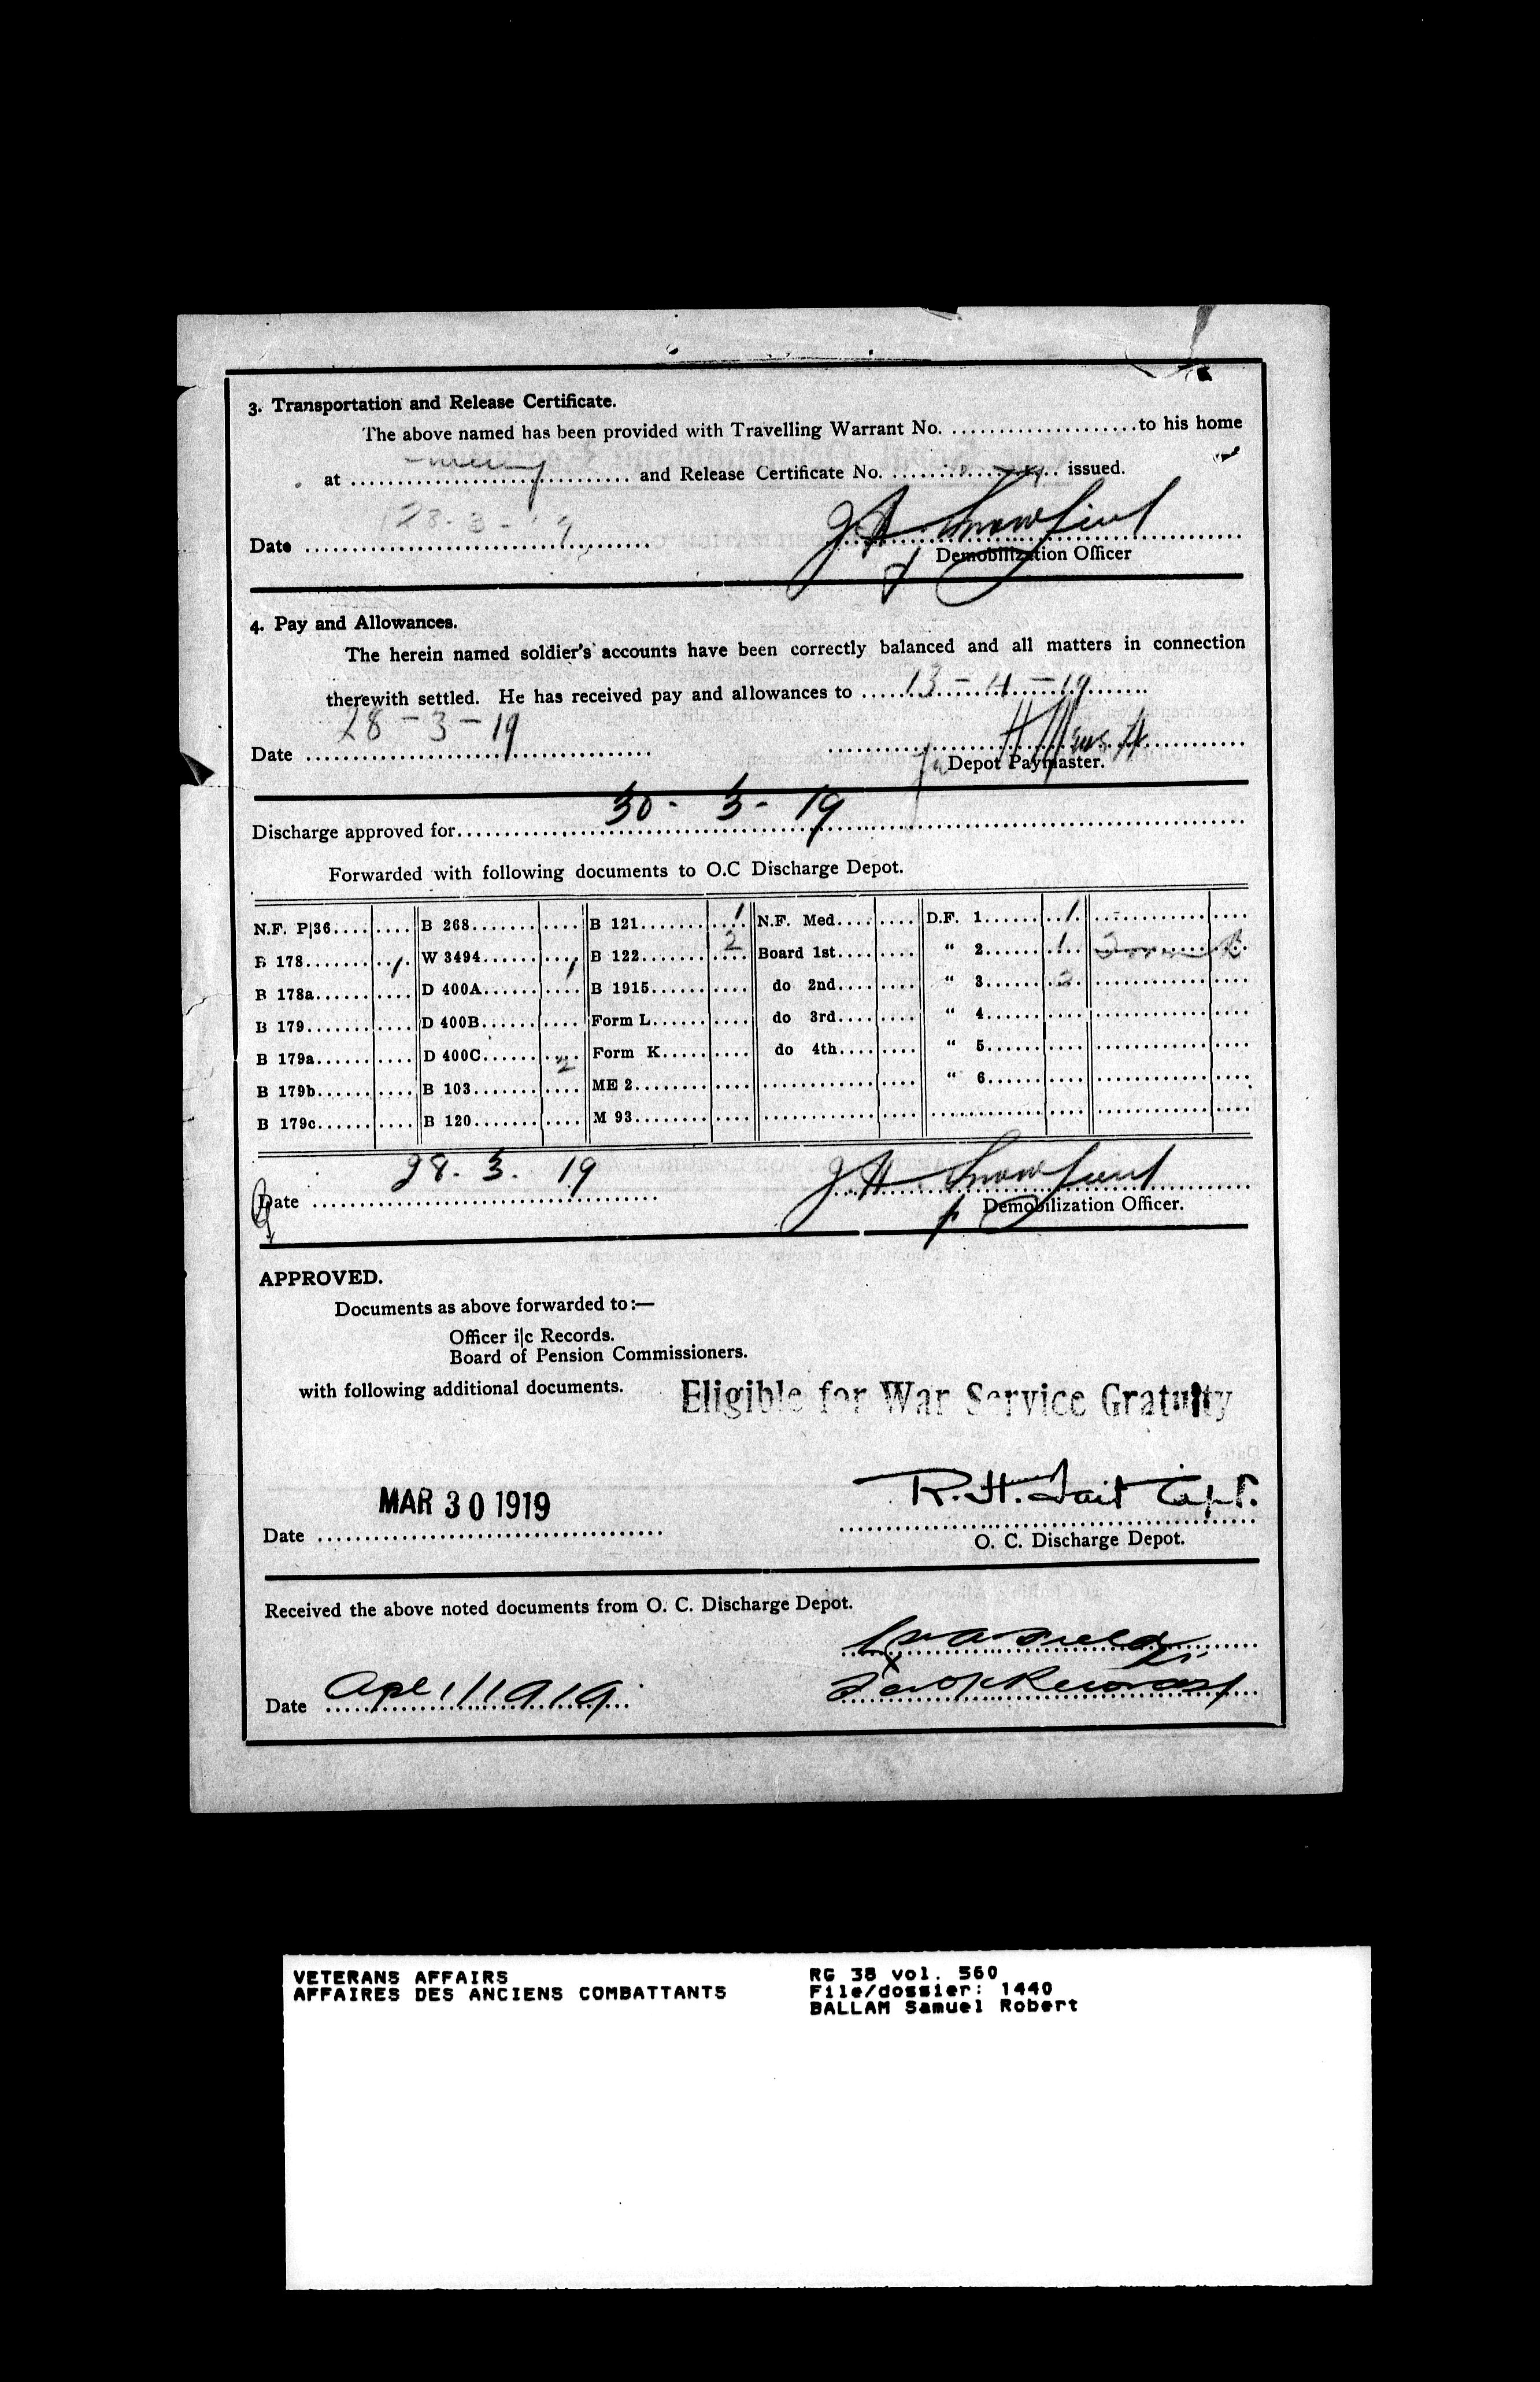 3. Transportation and Release Certificate.
The above named has been provided with Travelling Warrant No. ....................to his home
at .............................. and Release Certificate No. .................. issued.
28-3-19
Date ....................................
J H
Demobilization Officer
4. Pay and Allowances.
The herein named soldier's accounts have been correctly balanced and all matters in connection
therewith settled. He has received pay and allowances to .....13-4-19.......
28-3-19
Date ....................................
Depot Paymaster.
30-3-19
Discharge approved for....................................
Forwarded with following documents to O.C Discharge Depot.
N.F. P|36.... B 268....... B 121....... 1 N.F. Med.... D.F. 1...... 1
B 178....... 1 W 3494...... 1 B 122....... 2 Board 1st.... " 2...... 1 Form B
B 178a...... D 400A...... B 1915...... do 2nd.... " 3...... 2
B 179....... D 400B...... Form L...... do 3rd.... " 4......
B 179a...... D 400C...... Form K..... do 4th.... " 5......
B 179b...... B 103....... 2 ME 2........ " 6......
B 179c...... B 120....... M 93........
28.3.19
Date ....................................
J H
Demobilization Officer.
APPROVED.
Documents as above forwarded to:—
Officer i|c Records.
Board of Pension Commissioners.
with following additional documents.
Eligible for War Service Gratuity
MAR 30 1919
R.H. Tait Capt.
Date ....................................
O. C. Discharge Depot.
Received the above noted documents from O. C. Discharge Depot.
Date Apl 1/1919
Records
VETERANS AFFAIRS
AFFAIRES DES ANCIENS COMBATTANTS
RG 38 vol. 560
File/dossier: 1440
BALLAM Samuel Robert